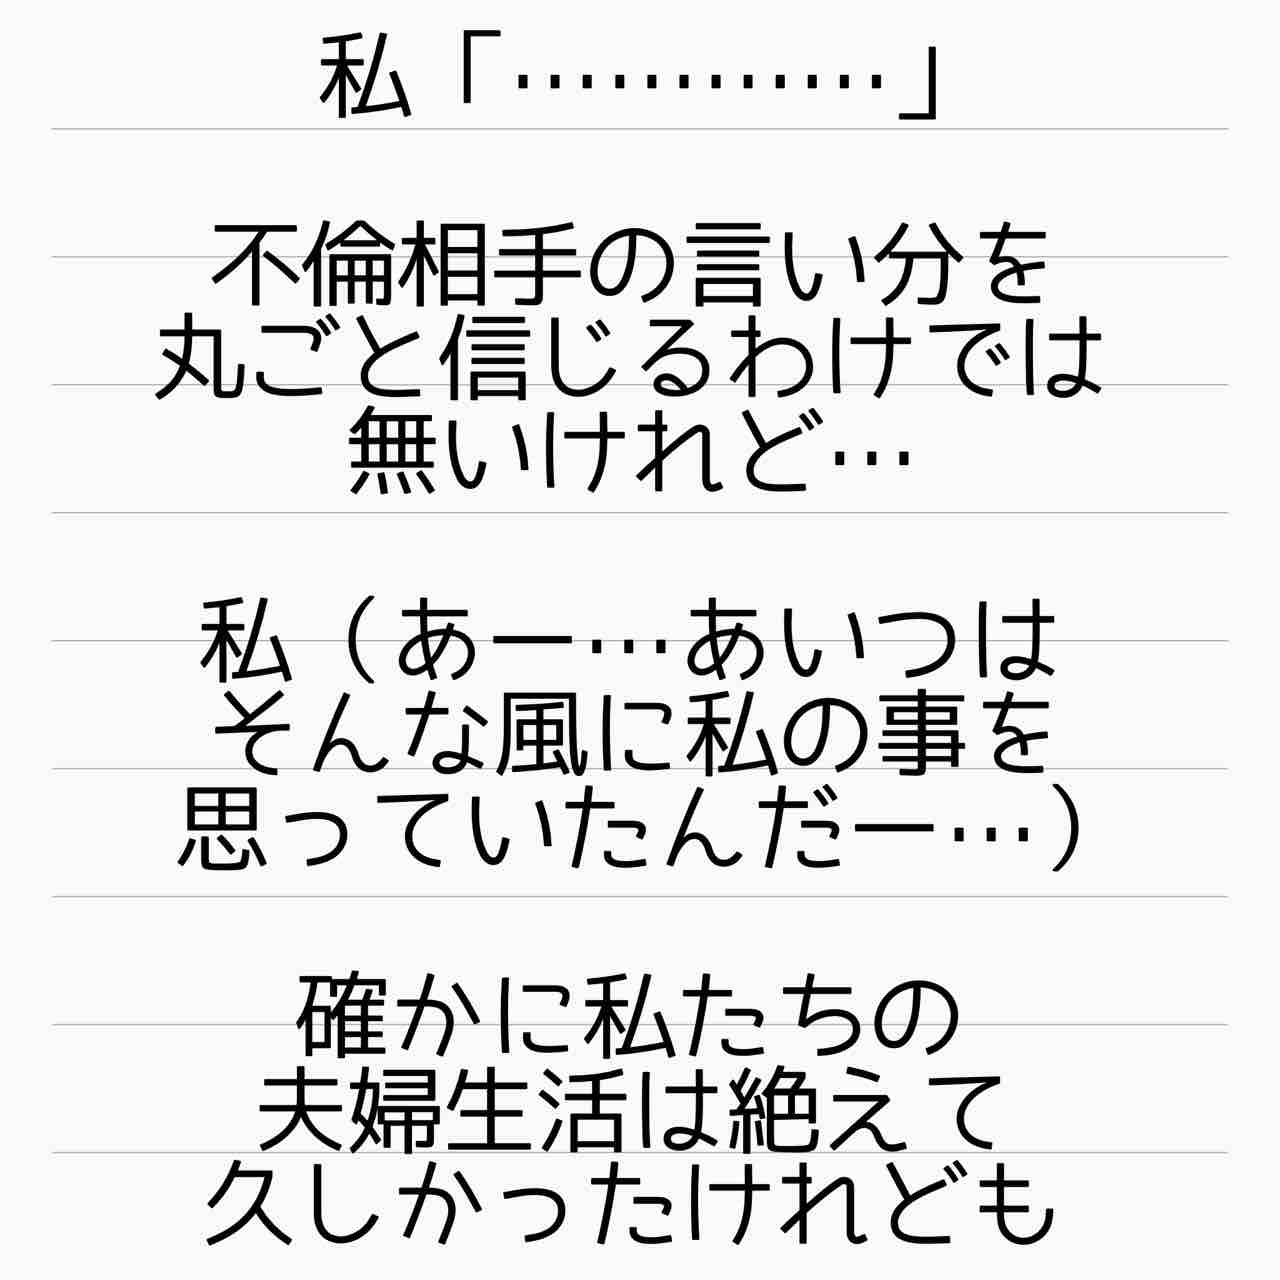 私「…………」
不倫相手の言い分を
丸ごと信じるわけでは
無いけれど…
私（あー…あいつは
そんな風に私の事を
思っていたんだー…）
確かに私たちの
夫婦生活は絶えて
久しかったけれども